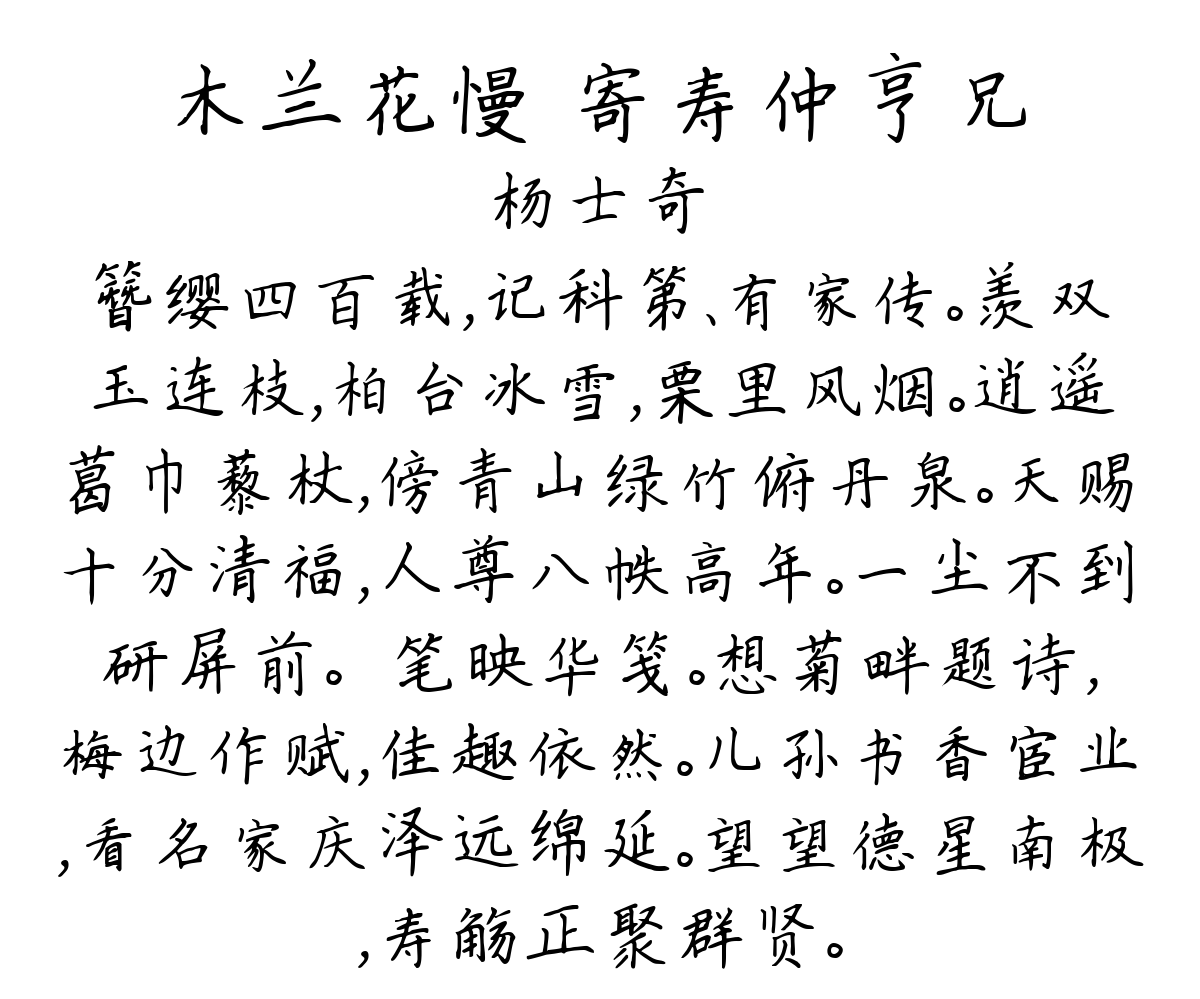 木兰花慢 寄寿仲亨兄
杨士奇
簪缨四百载,记科第、有家传。羡双
玉连枝,柏台冰雪,栗里风烟。逍遥
葛巾藜杖,傍青山绿竹俯丹泉。天赐
十分清福,人尊八帙高年。一尘不到
研屏前。 笔映华笺。想菊畔题诗,
梅边作赋,佳趣依然。儿孙书香宦业
,看名家庆泽远绵延。望望德星南极
,寿觞正聚群贤。